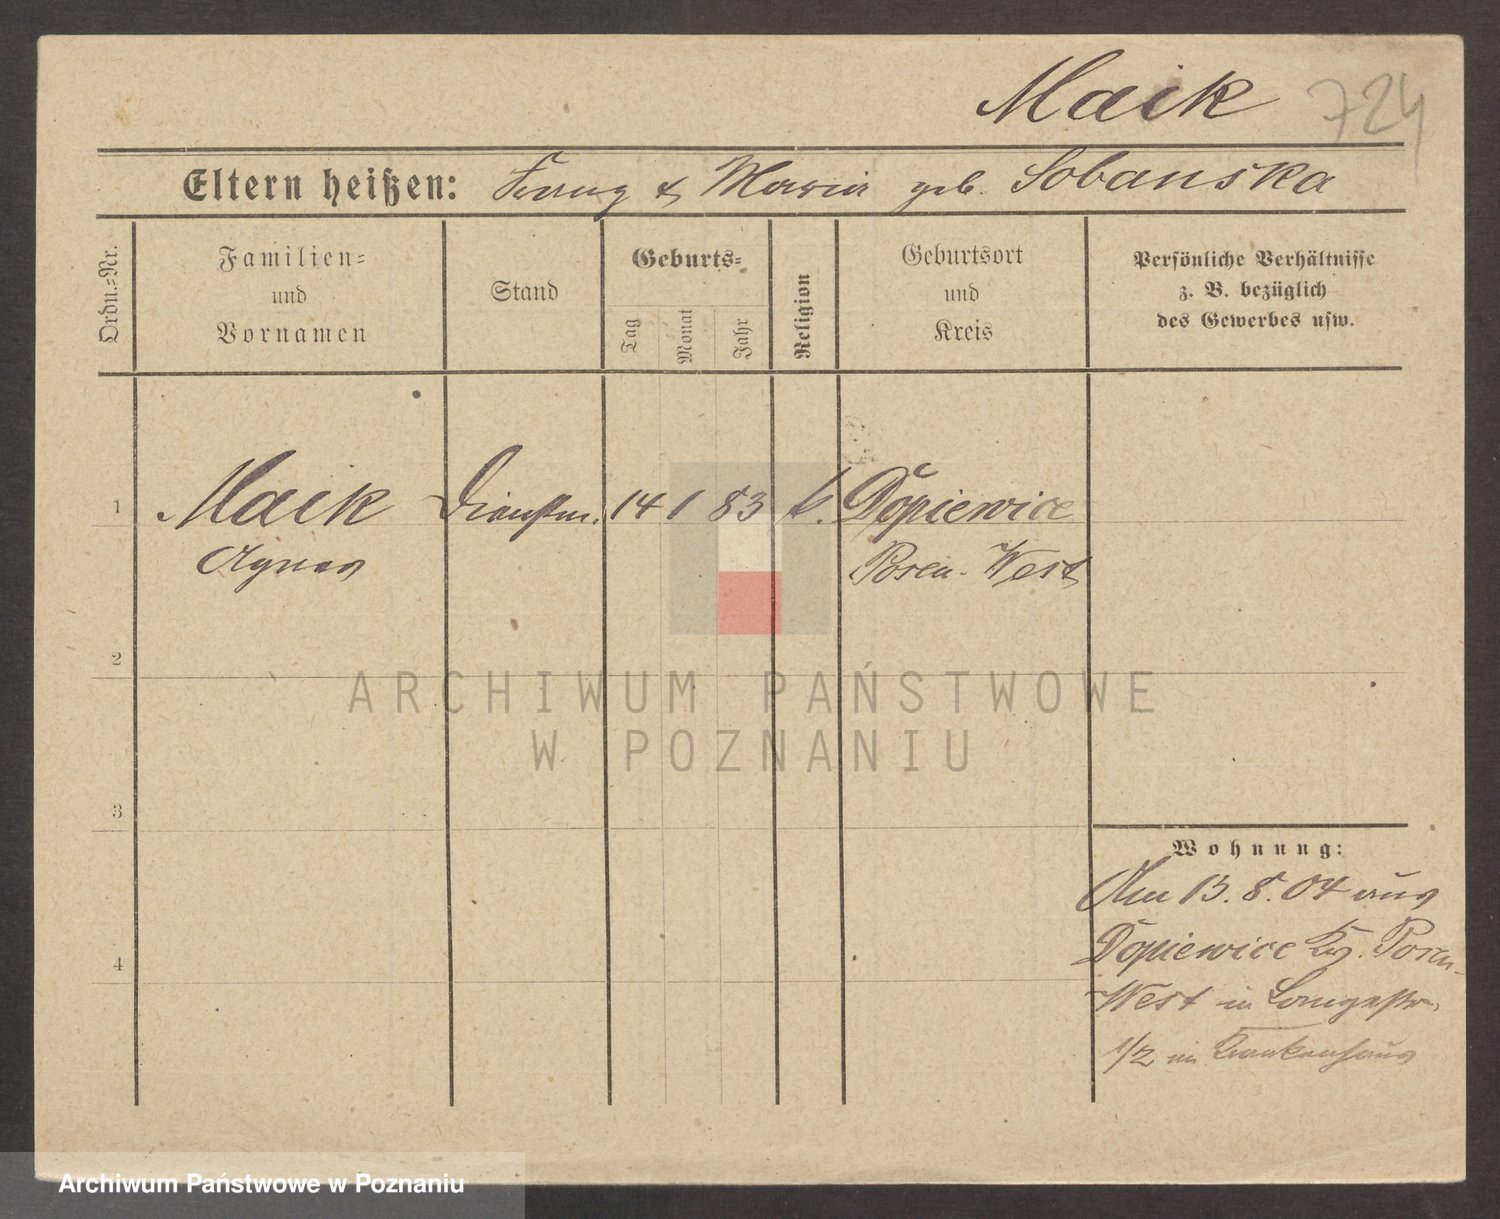 Maik 724
Eltern heißen: Franz & Maria geb. Sobanska
Ordn.-Nr.
Familien-
und
Vornamen
Stand
Geburts-
Tag
Monat
Jahr
Religion
Geburtsort
und
Kreis
Persönliche Verhältnisse
z. B. bezüglich
des Gewerbes usw.
1 Maik Dienstm. 14 1 83 k. Dopiewice
Agnes Posen-West
2
3
4
Wohnung:
Am 13. 8. 04 aus
Dopiewice Kr. Posen-
West in Langestr.
1/2 im Krankenhaus
ARCHIWUM PAŃSTWOWE
W POZNANIU
Archiwum Państwowe w Poznaniu